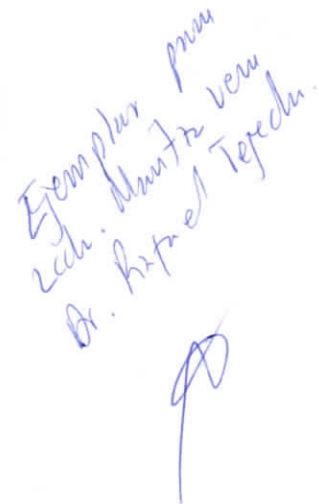 Ejemplar para
Lcda. Maritza Vera
Dr. Rafael Tejeda.